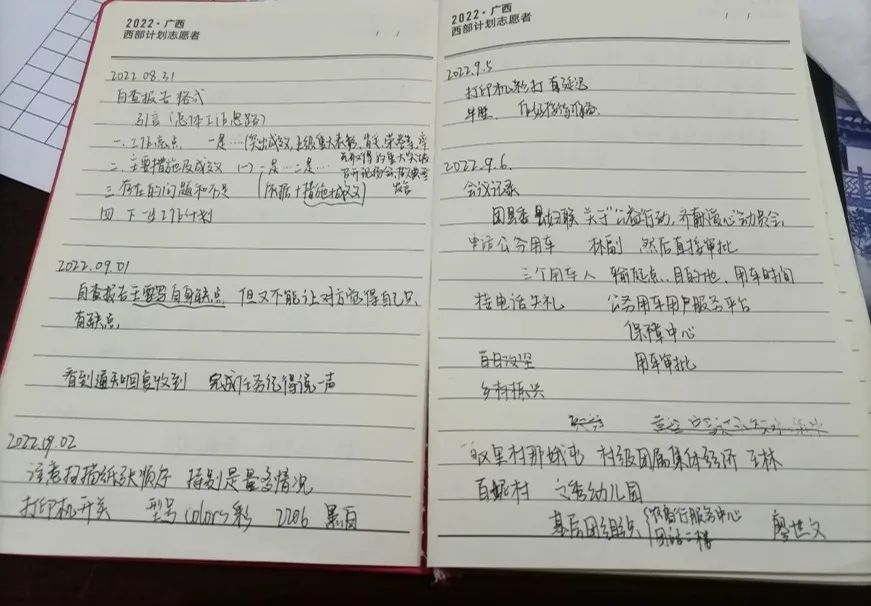 2022·广西
西部计划志愿者
2022.08.31
自查报告格式
引言(总体工作思路)
一.工作亮点 一是…(突出成效,上级重大表彰,肯定,荣誉等,序
二.主要措施及成效 (一) 一是…二是…
三.存在的问题和不足 (依据+措施+成效)
四 下一步工作计划
2022.09.01
自查报告主要写自身缺点 但又不能让对方觉得自己只
有缺点
看到通知回复收到 完成任务记得说一声
2022.09.02
注意扫描纸张顺序 特别是量多情况
打印机开关 型号 colors彩 2206 黑白
2022·广西
西部计划志愿者
2022.9.5
打印机彩打 有延迟
2022.9.6.
会议记录
团县委 县妇联 关于"公益行动,齐献爱心"动员会
申请公务用车 林副 然后直接审批
三个用车人 输起点、目的地、用车时间
接电话失礼 公务用车用户服务平台
保障中心
百日攻坚 用车审批
乡村振兴
村级团属集体经济 玉林
百妮村 文秀幼儿园
基层团组织 服务中心
廖世文